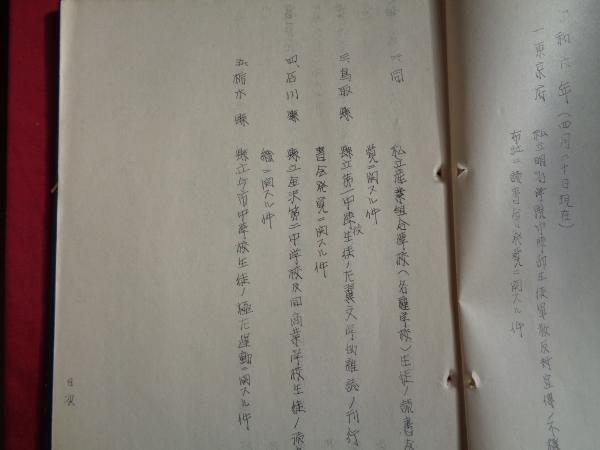 昭和六年（四月二十日現在）
一、東京府
私立明治学院中学部生徒軍教反対宣傳ノ不穏
布竝ニ読書会発覚ニ関スル件
二、同
私立産業組合学校（各種学校）生徒ノ読書会
覚ニ関スル件
三、鳥取縣
縣立第一中学校生徒ノ左翼文学的雑誌ノ刊行
書会発覚ニ関スル件
四、石川縣
縣立金沢第二中学校及同商業学校生徒ノ読
ニ関スル件
五、栃木縣
中学校生徒ノ極左運動ニ関スル件
目次